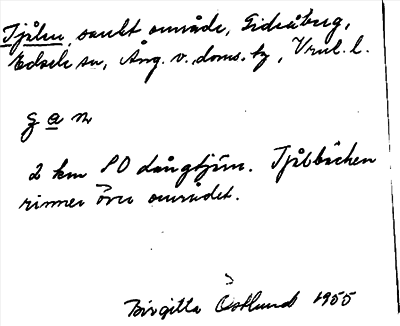 Tjålen, sankt område, Gideåberg,
Edsele sn, Ång. v. doms. tg, Vrul. l.
g a n
2 km SO Långtjärn. Tjålbäcken
rinner över området.
Birgitta Östlund 1955